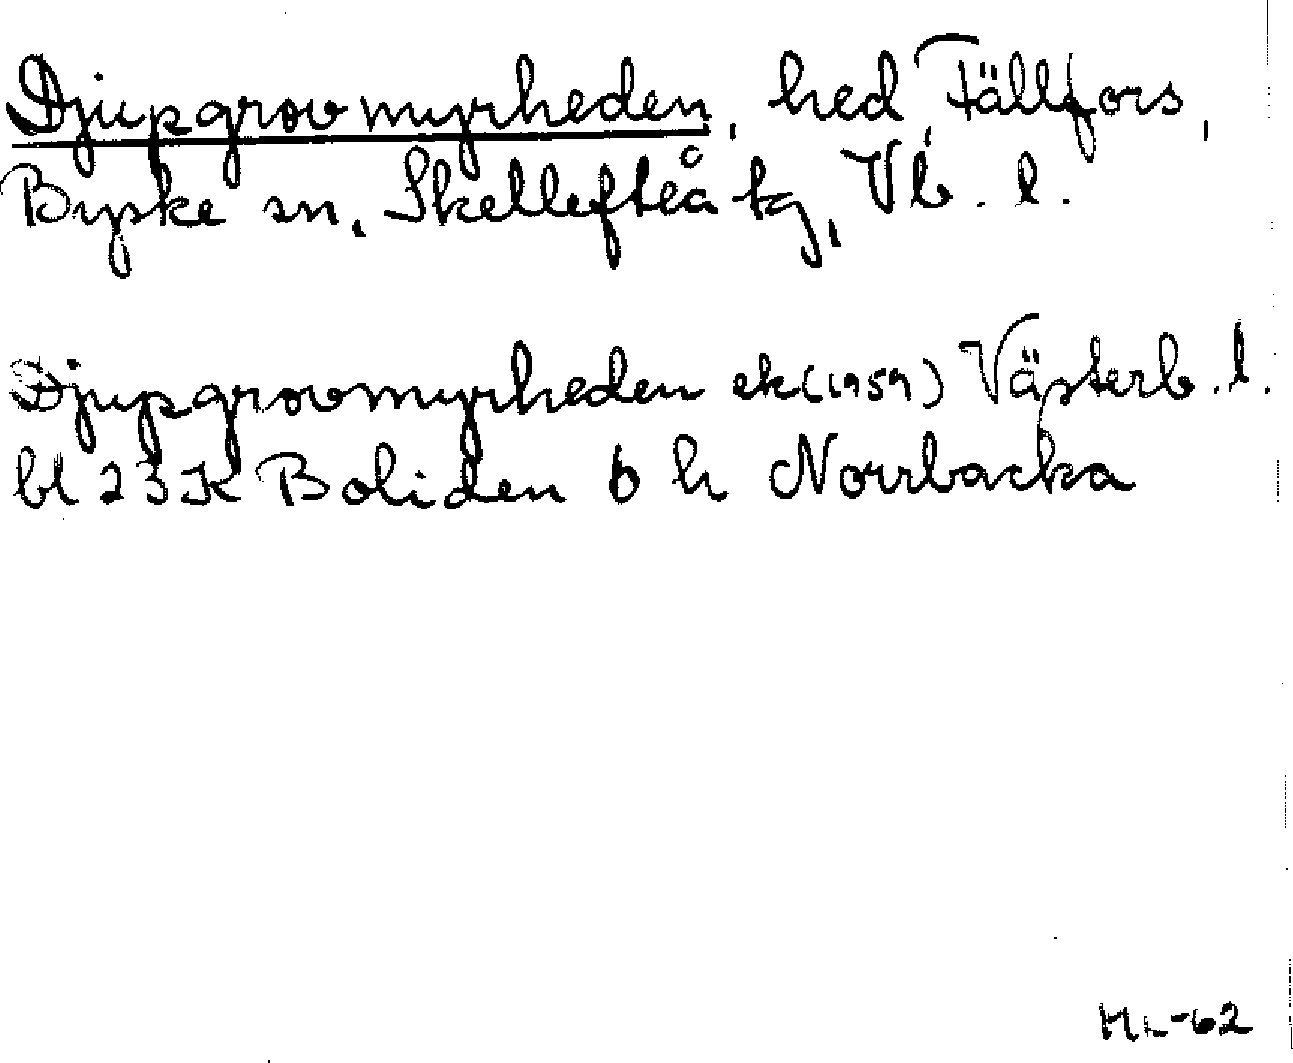 Djupgrovmyrheden, hed Fällfors,
Byske sn, Skellefteå tg, Vb. l.
Djupgrovmyrheden ek (1959) Västerb. l.
bl 23K Boliden 6 h Norrbacka